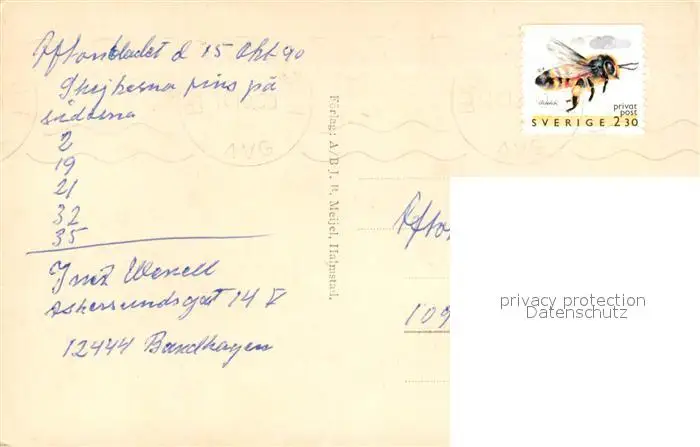 Aftonbladet d 15 Okt 90
Skojkerna fins på
sidorna
2
19
21
32
35
Inez Wexell
Askersundsgat 14 V
12444 Bandhagen
Förlag: A/B J. R. Meijel, Halmstad.
privat
post
SVERIGE 2.30
AVG
AVG
Afto
109
privacy protection
Datenschutz